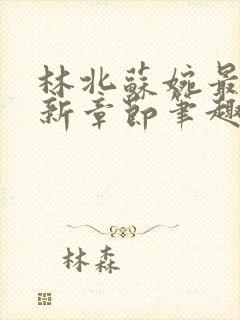 林北蘇婉最
新章節筆趣
林森